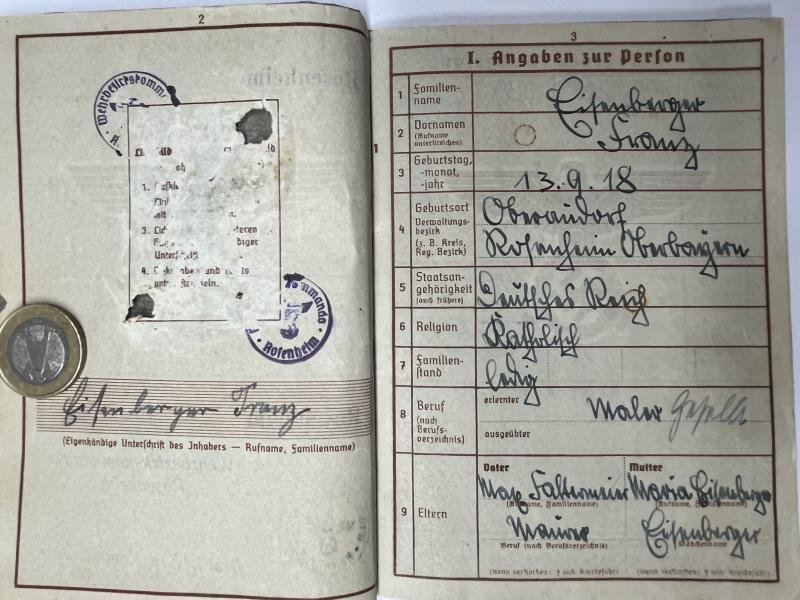 2
Wehrbezirkskomm
1.
3.
teren
diger
Unterschrift
4.
und
Kommando
Rosenheim
Eisenberger Franz
(Eigenhändige Unterschrift des Inhabers — Rufname, Familienname)
3
I. Angaben zur Person
1 Familien-
name
Eisenberger
2 Vornamen
(Rufname
unterstreichen)
Franz
3 Geburtstag,
-monat,
-jahr
13.9.18
4 Geburtsort
Verwaltungs-
bezirk
(z. B. Kreis,
Reg. Bezirk)
Oberaudorf
Rosenheim Oberbayern
5 Staatsan-
gehörigkeit
(auch frühere)
Deutsches Reich
6 Religion
Katholisch
7 Familien-
stand
ledig
8 Beruf
(nach
Berufs-
verzeichnis)
erlernter
Maler Geselle
ausgeübter
9 Eltern
Vater
Max Faltermeier
(Rufname, Familienname)
Maurer
Beruf (nach Berufsverzeichnis)
(wenn verstorben: † und Sterbejahr)
Mutter
Maria Eisenberger
(Rufname, Familienname)
Eisenberger
Mädchenname
(wenn verstorben: † und Sterbejahr)